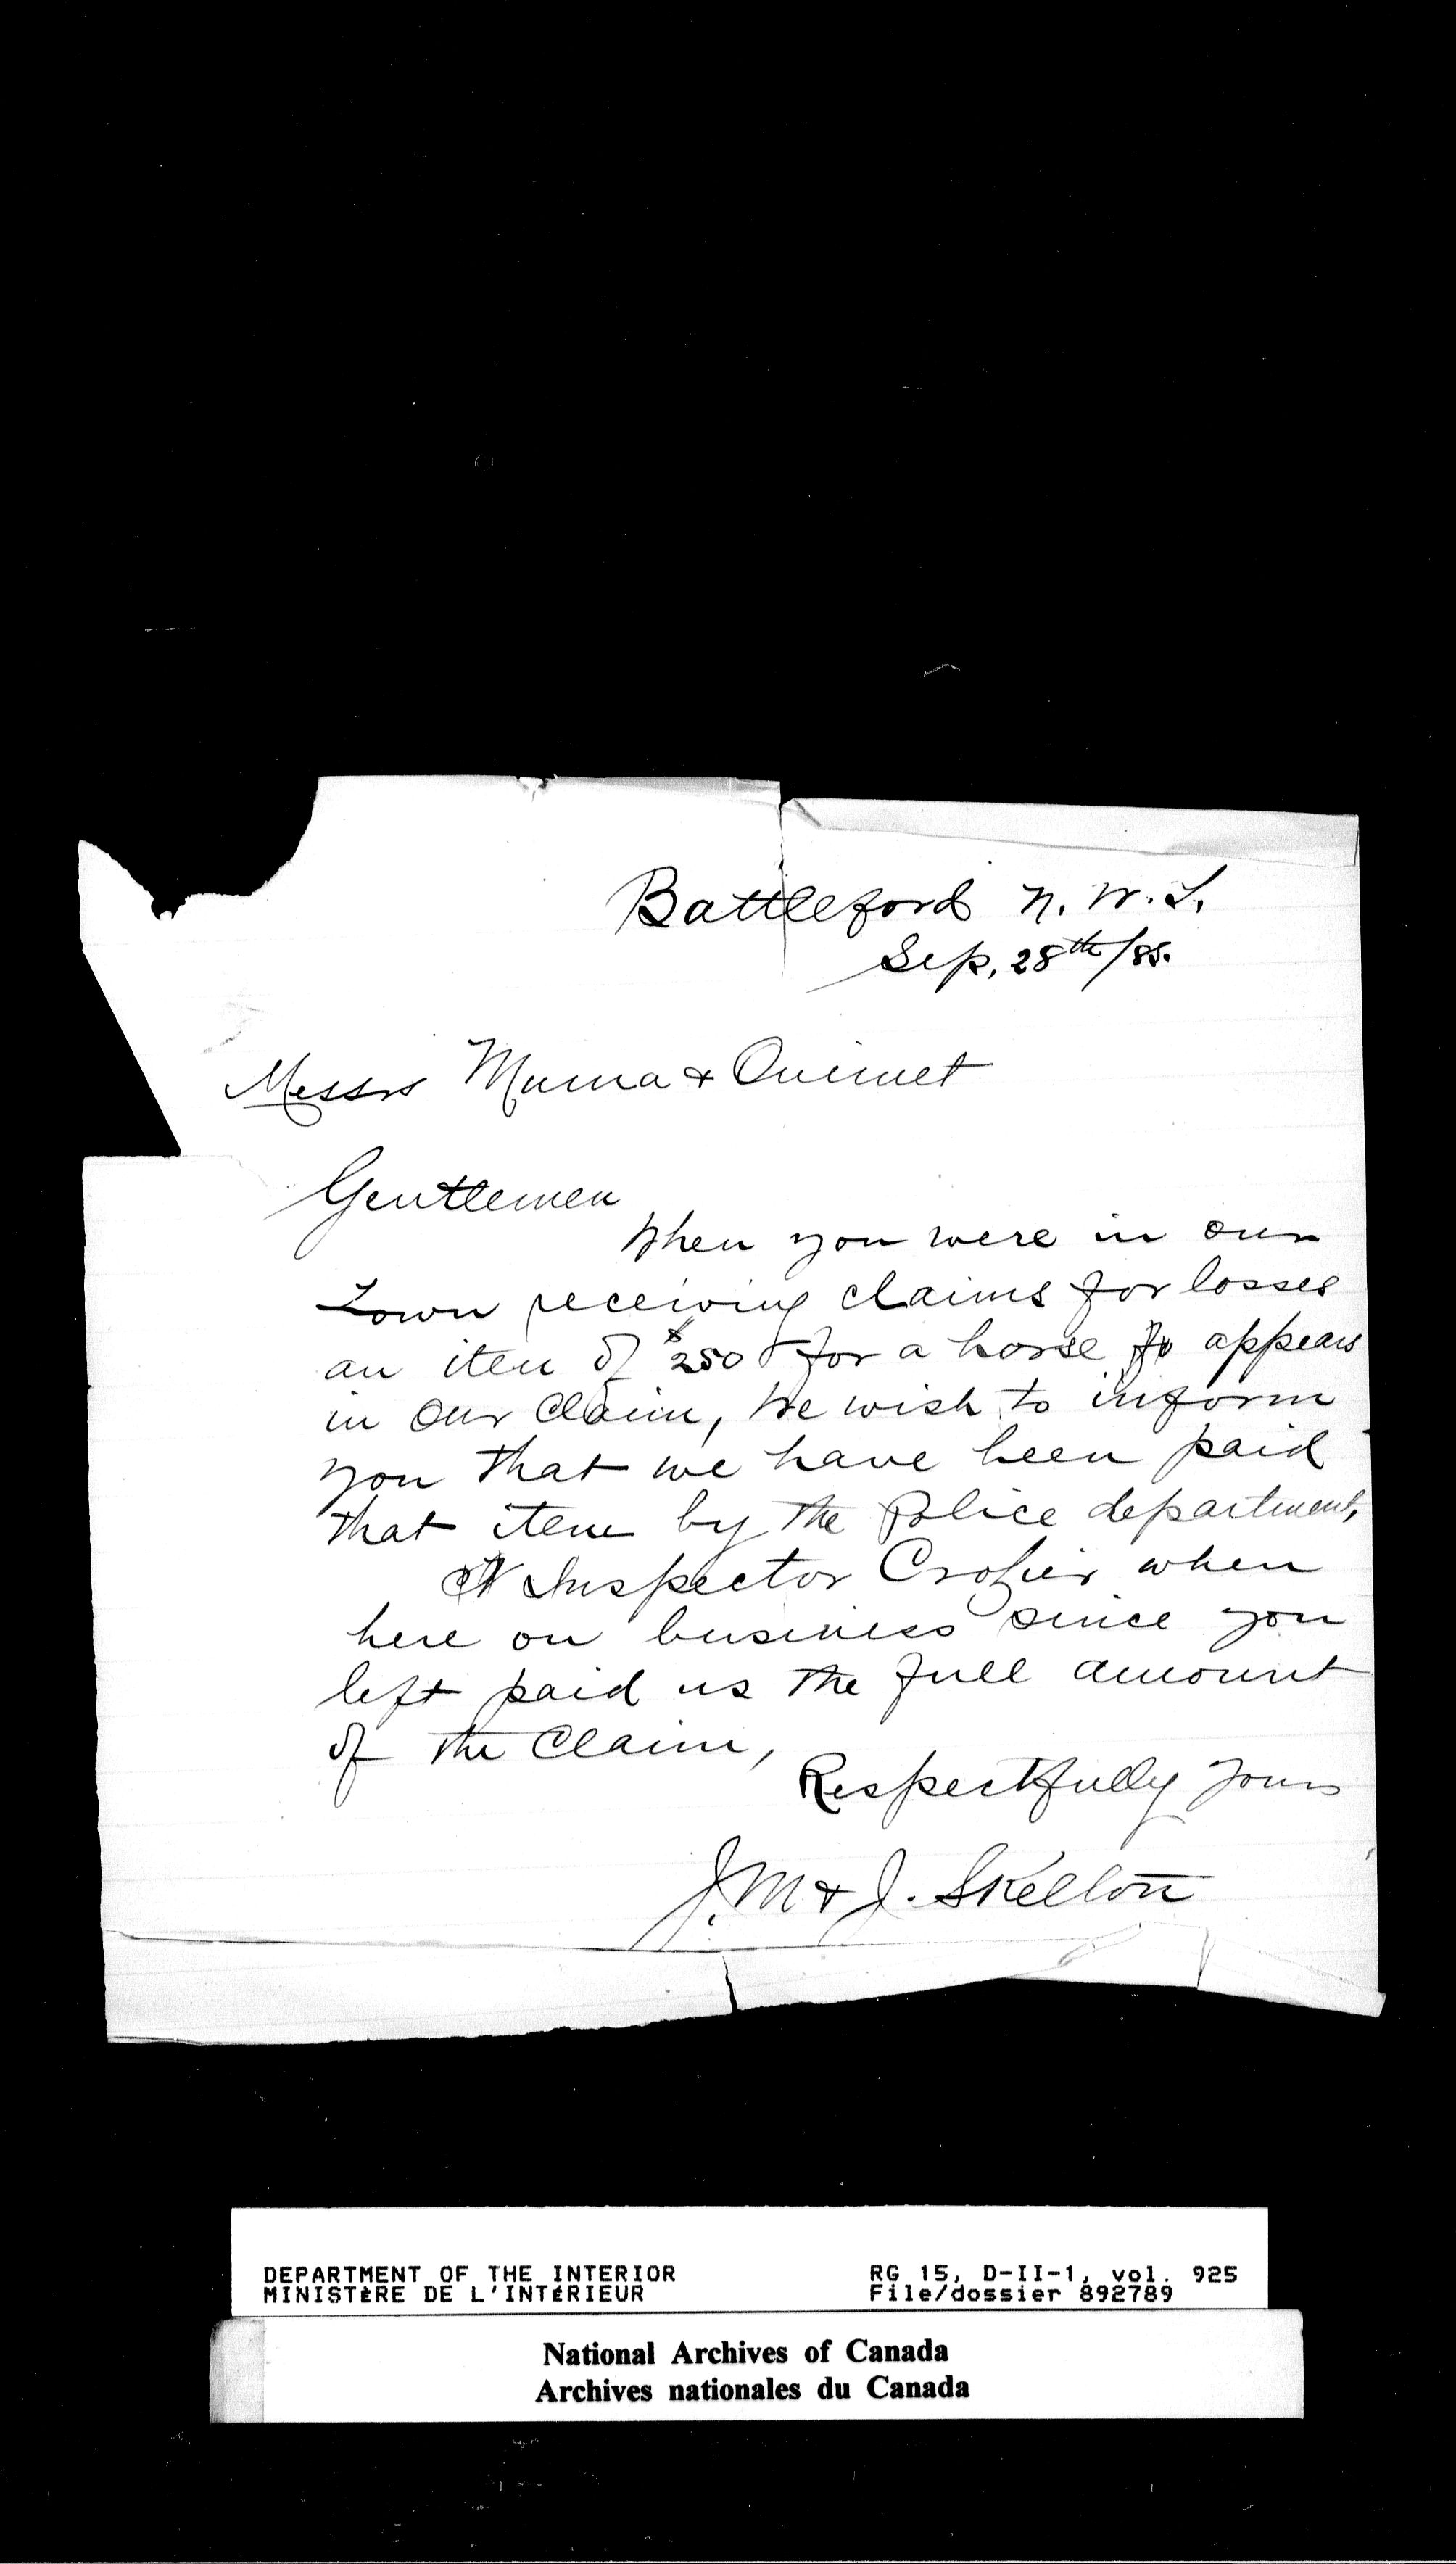 Battleford N. W. T.
Sep. 28th/85.
Messrs Muma & Ouimet
Gentlemen
When you were in our
Town receiving claims for losses
an item of $250 for a horse appears
in our Claim, We wish to inform
you that we have been paid
that item by the Police department,
Inspector Crozier when
here on business since you
left paid us the full amount
of the Claim,
Respectfully yours
J. M & J. Skelton
DEPARTMENT OF THE INTERIOR RG 15, D-II-1, vol. 925
MINISTÈRE DE L'INTÉRIEUR File/dossier 892789
National Archives of Canada
Archives nationales du Canada